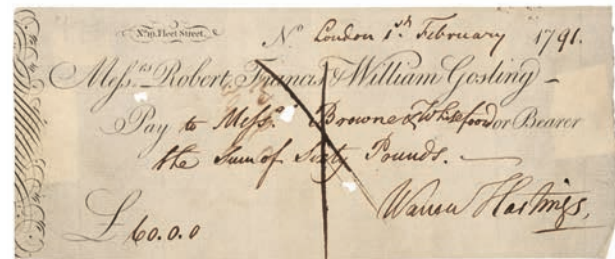 No. 19, Fleet Street.
No. London 1st February 1791.
Messrs. Robert, Francis & William Gosling —
Pay to Messrs. Browne & Whiteford or Bearer
the Sum of Sixty Pounds. —
£ 60.0.0 Warren Hastings,